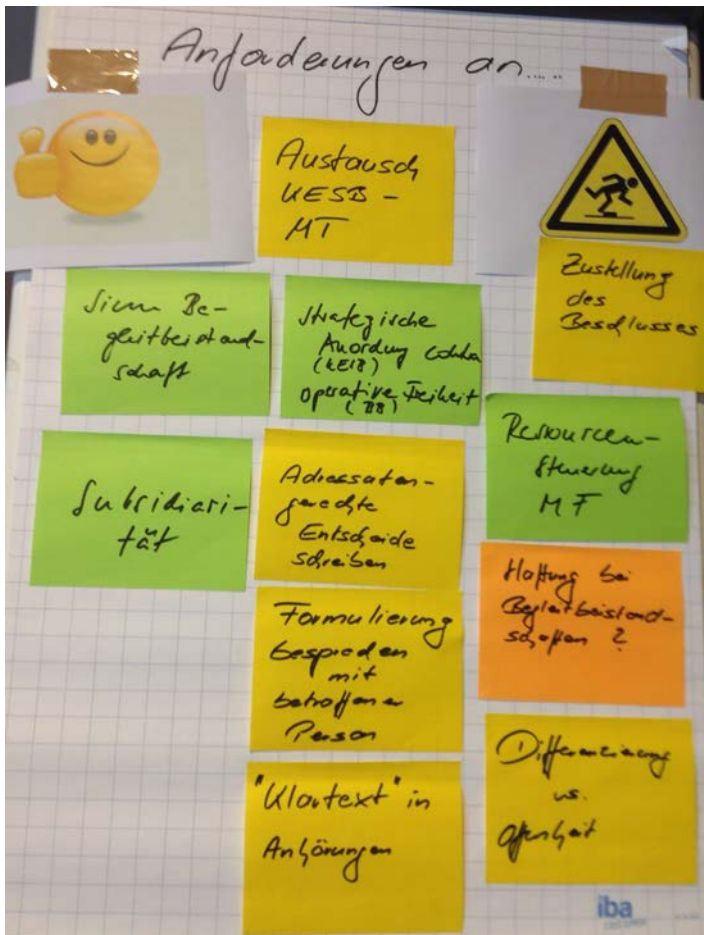 Anforderungen an.....
Austausch
KESB -
MT
Zustellung
des
Beschlusses
Sinn Be-
gleitbeistand-
schaft
Strategische
Anordnung
(KESB)
operative Freiheit
(BB)
Ressourcen-
steuerung
MF
Subsidiari-
tät
Adressaten-
gerechte
Entscheide
schreiben
Haftung bei
Begleitbeistand-
schaften ?
Formulierung
besprechen
mit
betroffener
Person
Differenzierung
vs.
Offenheit
"Klartext" in
Anhörungen
iba